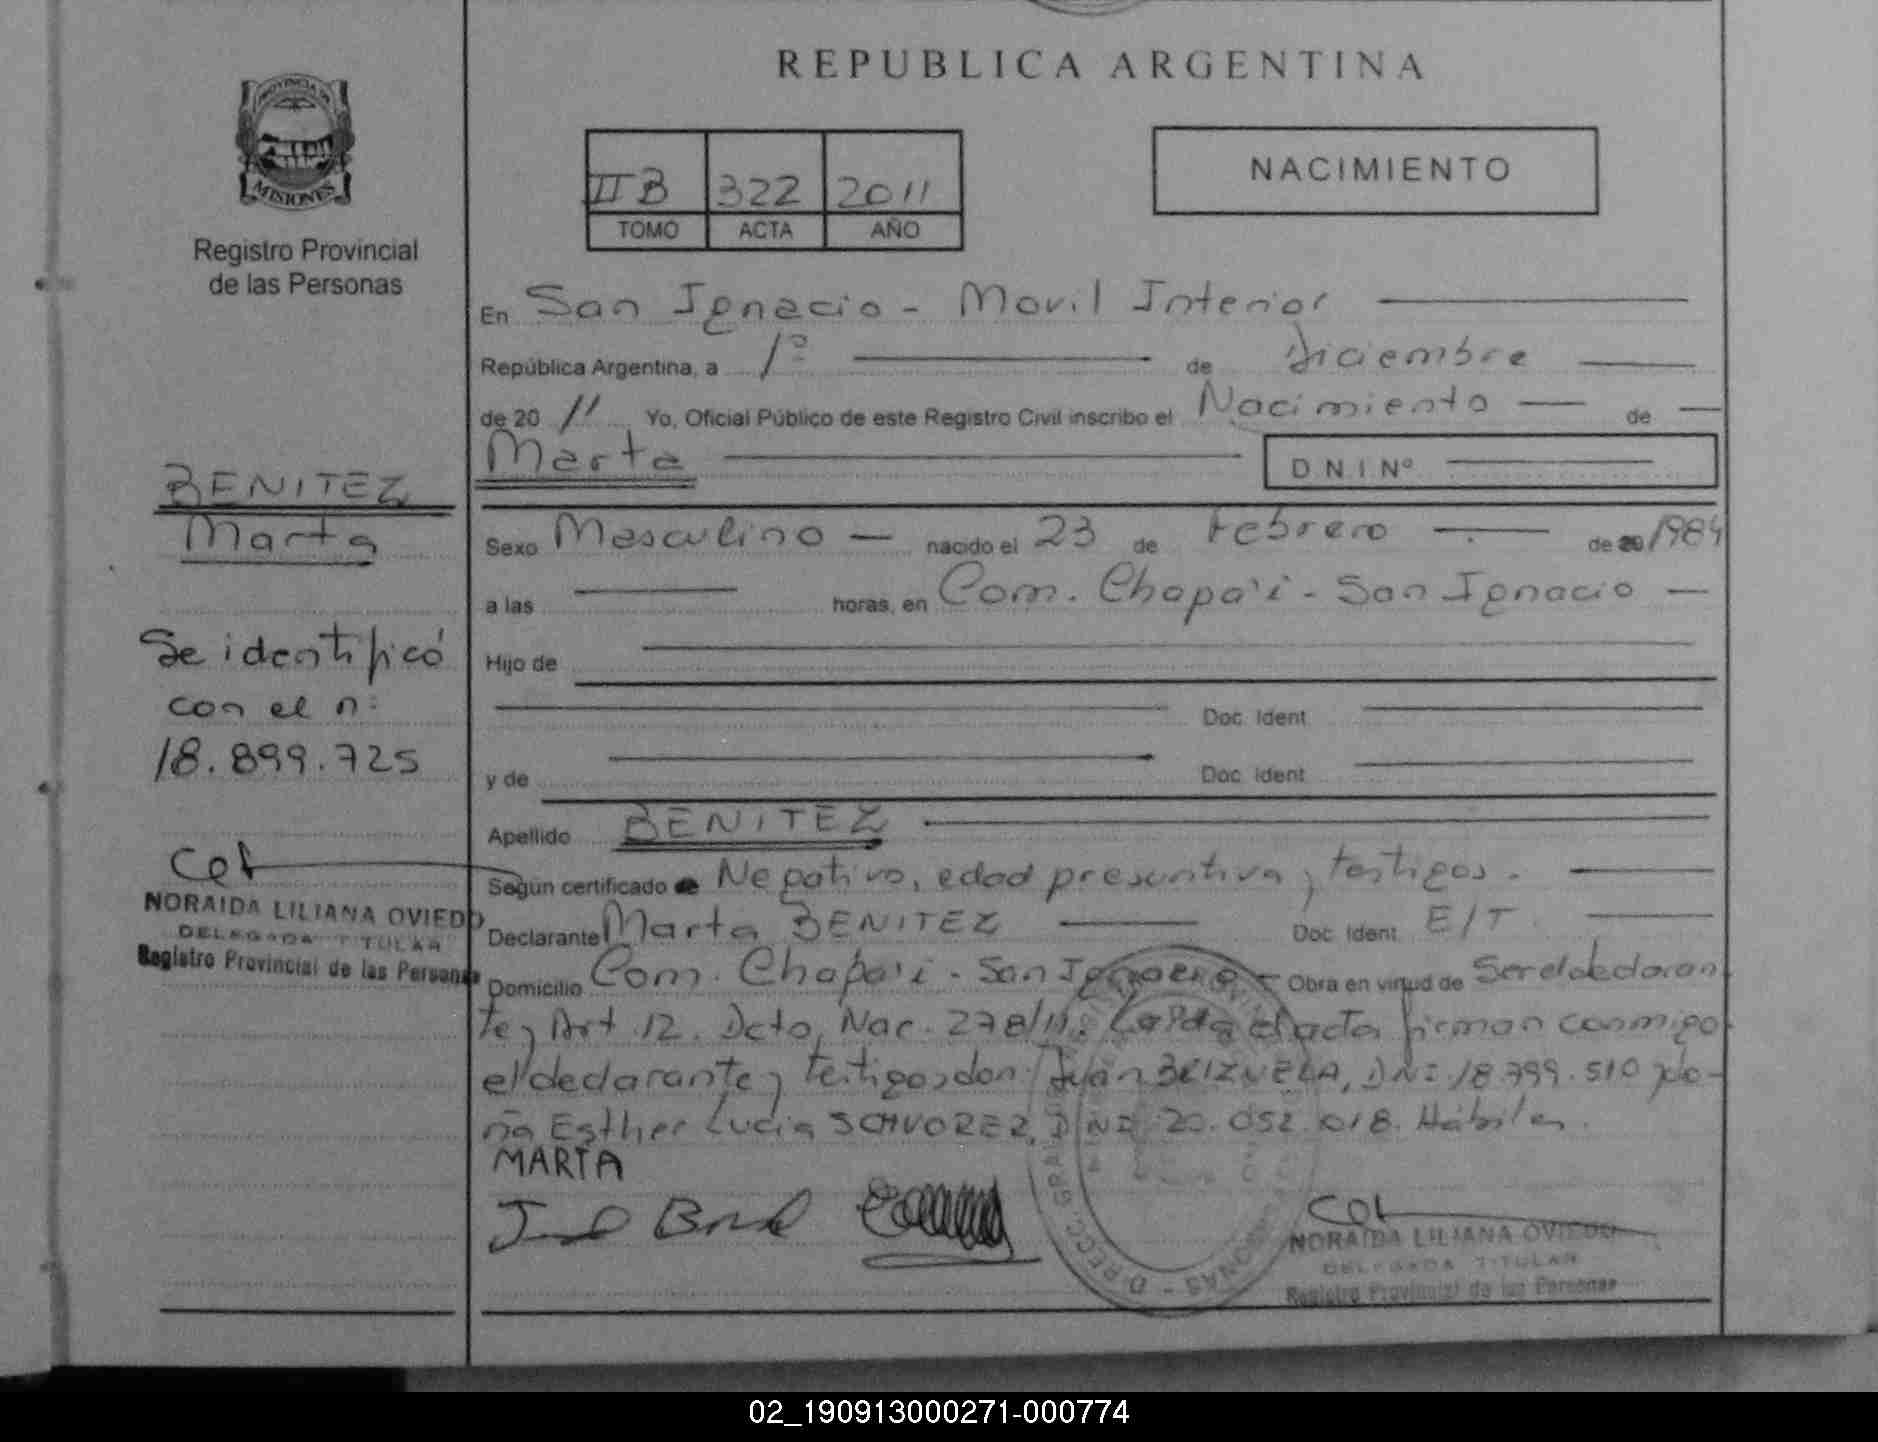 REPUBLICA ARGENTINA
PROVINCIA DE
MISIONES
Registro Provincial
de las Personas
II B 322 2011
TOMO ACTA AÑO
NACIMIENTO
En San Ignacio - Movil Interior
República Argentina, a 1º de diciembre
de 20 11 Yo, Oficial Público de este Registro Civil inscribo el Nacimiento de
Marta D N I Nº
BENITEZ
Marta
Se identificó
con el n:
18.899.725
NORAIDA LILIANA OVIEDO
DELEGADA TITULAR
Registro Provincial de las Personas
Sexo Masculino nacido el 23 de Febrero de 20 1984
a las horas, en Com. Chapa'i - San Ignacio
Hijo de
Doc. Ident
y de Doc. Ident
Apellido BENITEZ
Según certificado de Negativo, edad presuntiva y testigos.
Declarante Marta BENITEZ Doc. Ident. E/T
Domicilio Com. Chapa'i - San Ignacio Obra en virtud de Ser el declaran
te y Art. 12. Dcto. Nac. 278/11. Leída el acta firman conmigo
el declarante y testigos don Juan BRIZUELA, DNI 18.799.510 y do-
ña Esther Lucia DNI 20.052.018. Hábiles.
MARTA
NORAIDA LILIANA OVIEDO
DELEGADA TITULAR
Registro Provincial de las Personas
02_190913000271-000774